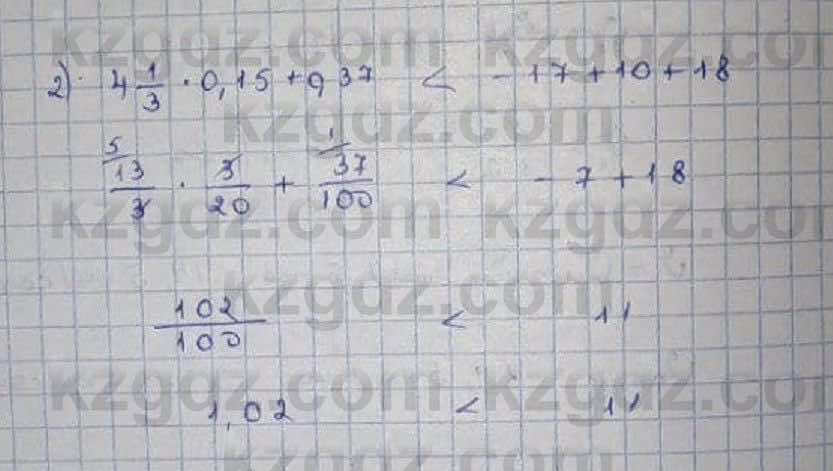 kzgdz.com kzgdz.com
2) 4 1/3 · 0,15 + 0,37 < -17+10+18
kzgdz.com
5 1
13/3 · 3/20 + 37/100 < -7+18
kzgdz.com kzgdz.com
kzgdz.com
102/100 < 11
kzgdz.com kzgdz.com
1,02 < 11
kzgdz.com